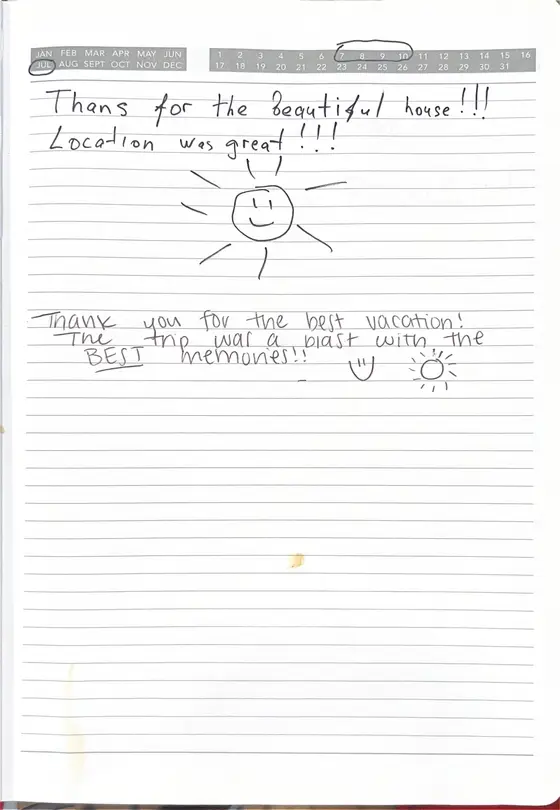 JAN FEB MAR APR MAY JUN
JUL AUG SEPT OCT NOV DEC
1 2 3 4 5 6 7 8 9 10 11 12 13 14 15 16
17 18 19 20 21 22 23 24 25 26 27 28 29 30 31
Thans for the Beautiful house!!!
Location was great!!!
Thank you for the best vacation!
The trip was a blast with the
BEST memories!!